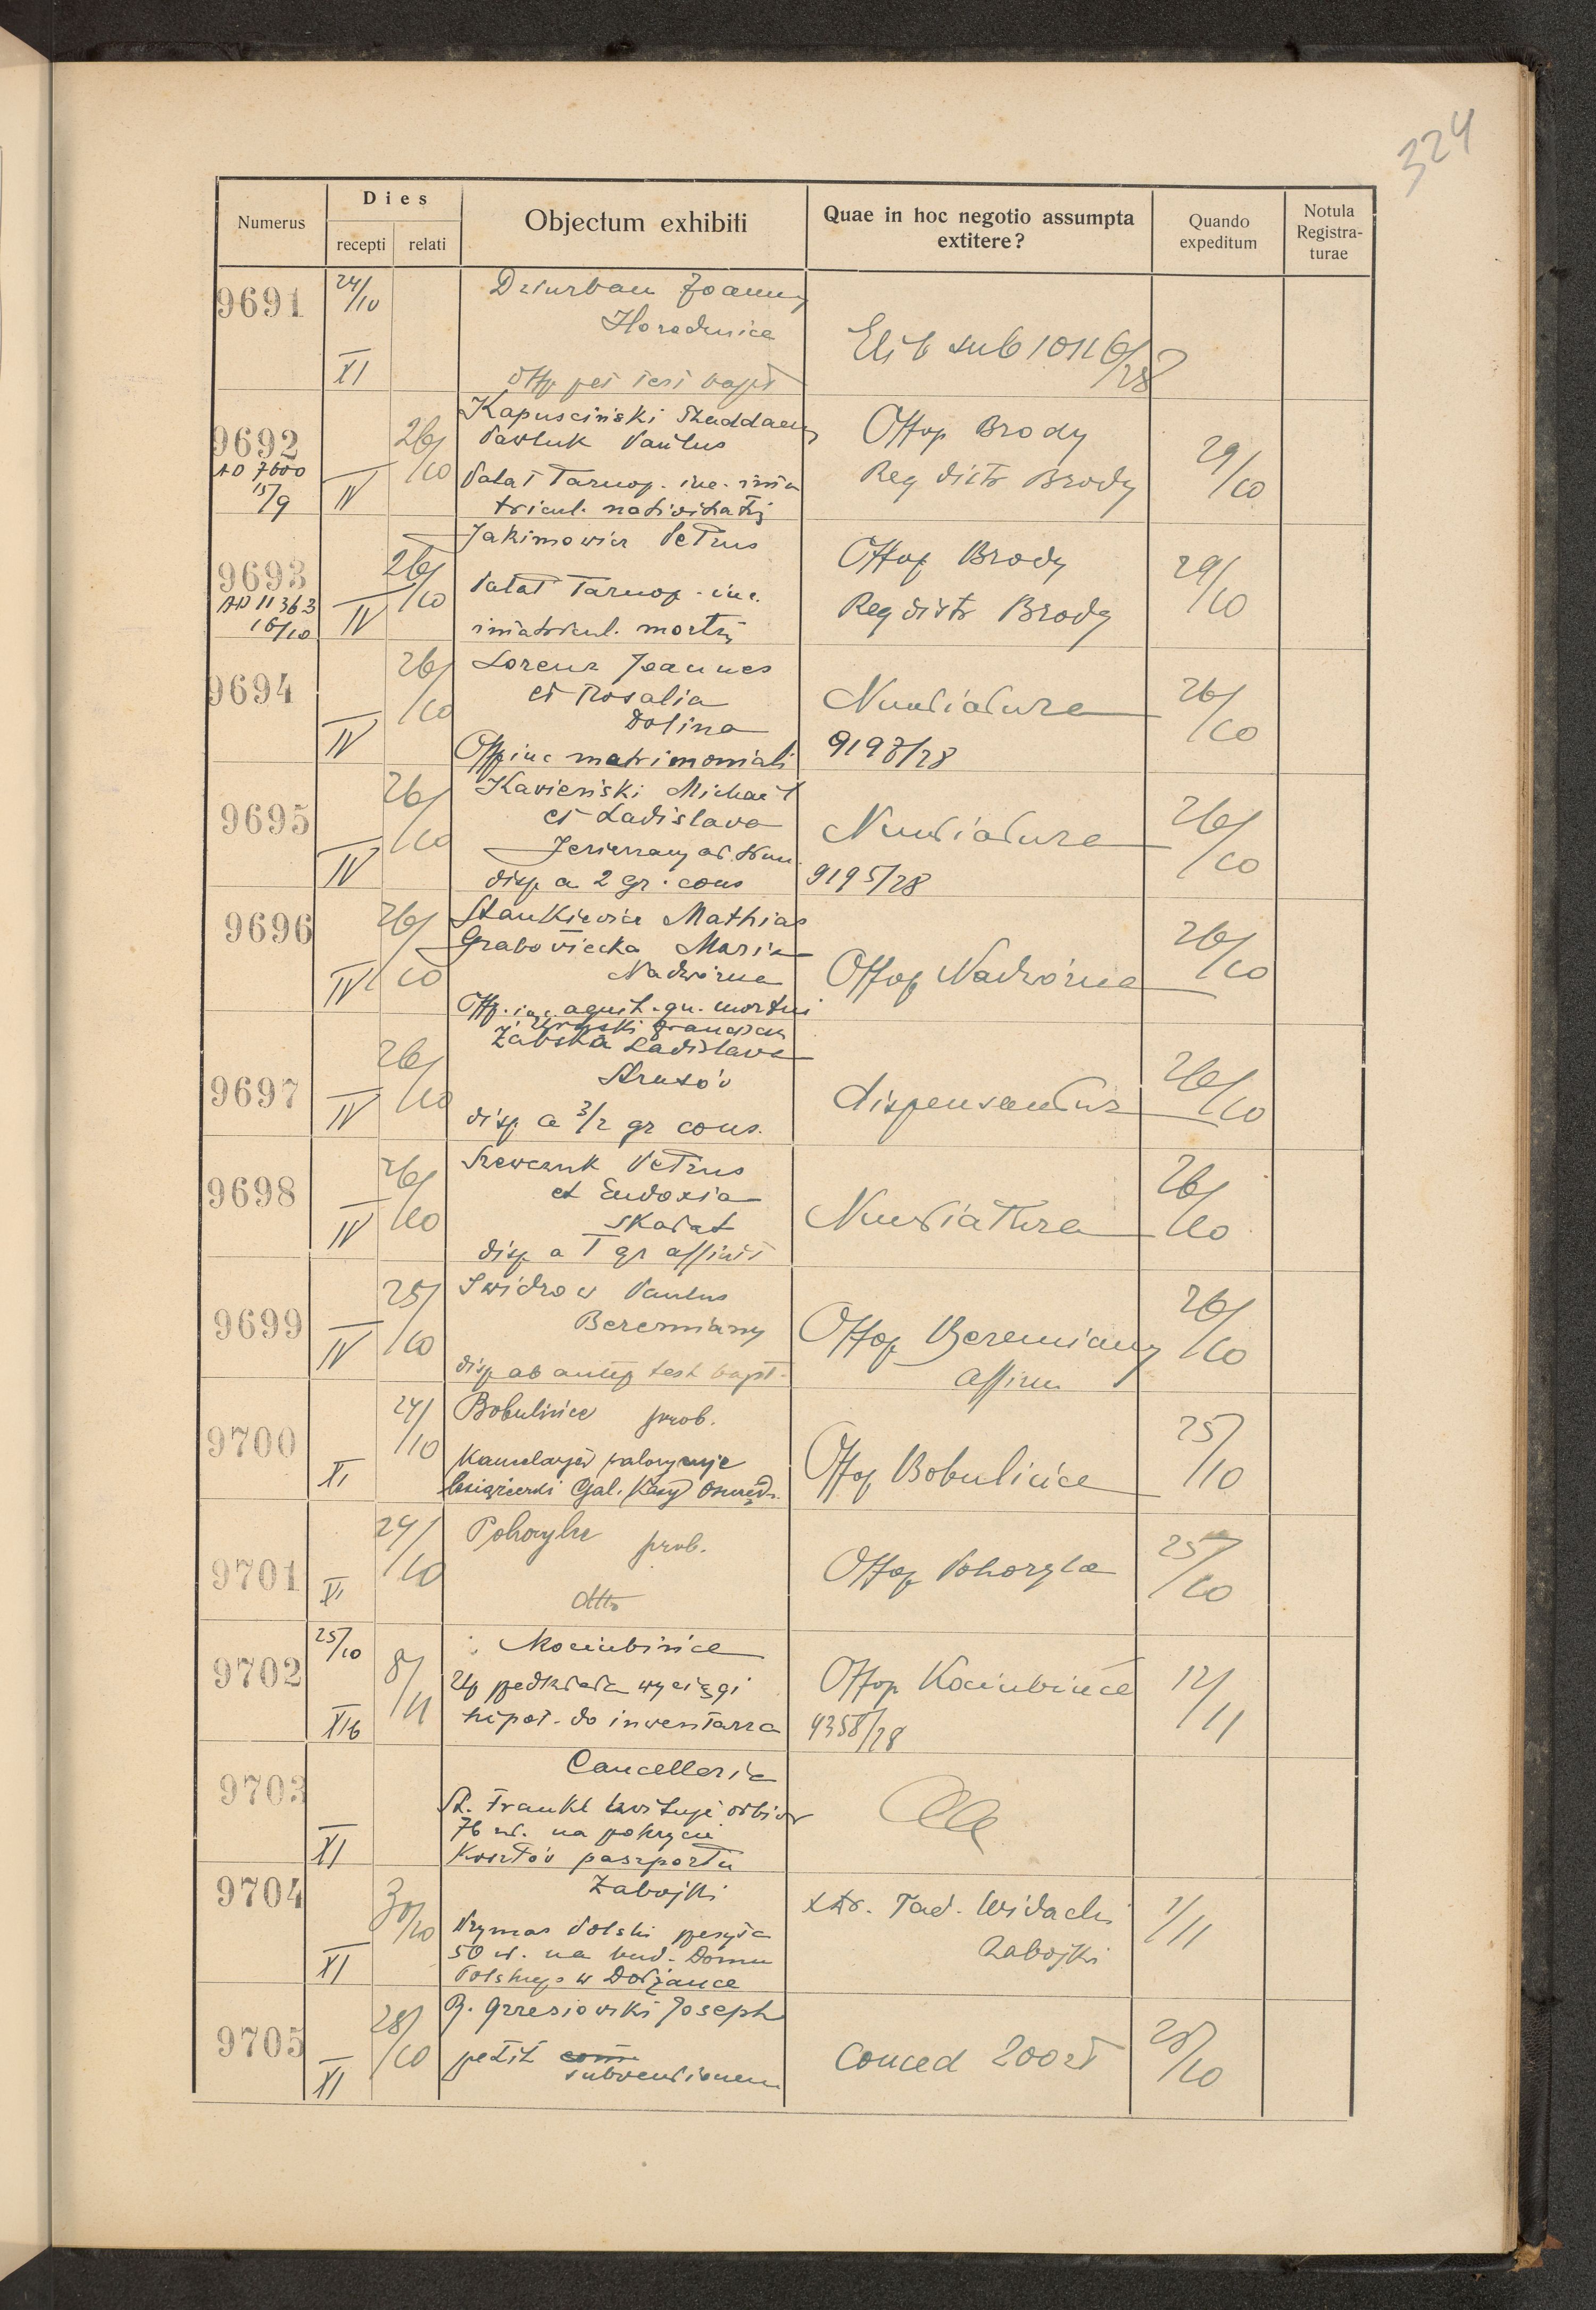 324
Numerus
Dies
recepti
relati
Objectum exhibiti
Quae in hoc negotio assumpta
extitere?
Quando
expeditum
Notula
Registra-
turae
9691
24/10
XI
Dziurban Joannes
Horodnica
Offp pet test bapt
Elib sub 10116/28
9692
AD 7600
15/9
IV
26/10
Kapusciński Thaddaeus
Pawluk Paulus
Palat Tarnop. inc. imma
tricul. nativitatis
Offop Brody
Reg distr Brody
29/10
9693
AD 11363
16/10
IV
26/10
Jakimowicz Petrus
Palat Tarnop. inc.
immatricul. mortis
Offop Brody
Reg distr Brody
29/10
9694
IV
26/10
Lorenz Joannes
et Rosalia
Dolina
Offp inc matrimoniali
Nuntiatura
9198/28
26/10
9695
IV
26/10
Michael
et Ladislava
disp a 2 gr. cons
Nuntiatura
9195/28
26/10
9696
IV
26/10
Stankiewicz Mathias
Grabowiecka Maria
Nadwórna
Offp. inc. agnit. qu. mortui
Offop Nadwórna
26/10
9697
IV
26/10
Żabska Ladislava
Strusów
disp a 3/2 gr cons.
dispensantur
26/10
9698
IV
26/10
Szewczuk Petrus
et Eudoxia
Skałat
disp a I gr affinit
Nuntiatura
26/10
9699
IV
25/10
Swidrow Paulus
Beremiany
disp ab antep test bapt.
Offop Beremiany
affirm
26/10
9700
XI
24/10
Bobulińce prob.
książeczki Gal. Kasy Oszczęd.
Offop Bobulińce
25/10
9701
XI
24/10
Pohoryłce prob.
dtto
Offop Pohoryłce
25/10
9702
25/10
XIb
8/11
Kociubińce
Up przedkłada wyciągi
hipot. do inwentarza
Offop Kociubińce
4358/28
12/11
9703
XI
Cancellaria
St. Frankl kwituje odbiór
76 zł. na pokrycie
kosztów paszportu
aa
9704
XI
30/10
Zabojki
Prymas Polski posyła
50 zł. na bud. Domu
Polskiego w Dołżance
Xdr. Tad. Widacki
Zabojki
1/11
9705
XI
28/10
P. Grzesiowski Joseph
petit
subventionem
Conced 200 zł
28/10